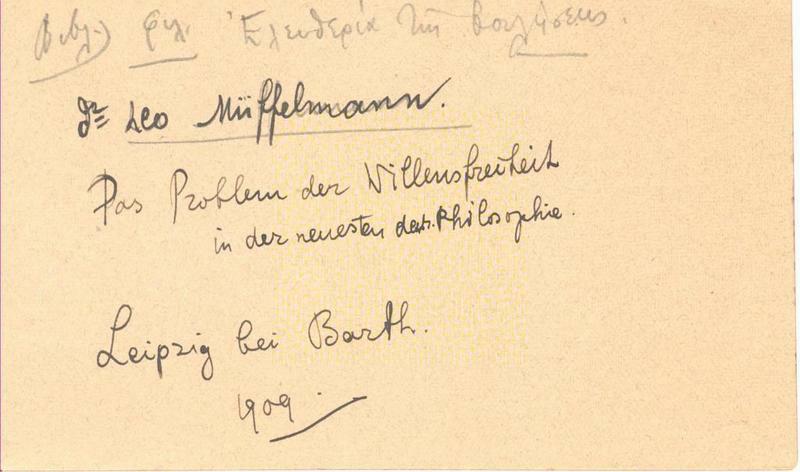 Βιβλ) φιλ. Ἐλευθερία τῆς βουλήσεως.
Dr Leo Müffelmann.
Das Problem der Willensfreiheit
in der neuesten deut. Philosophie.
Leipzig bei Barth.
1909.